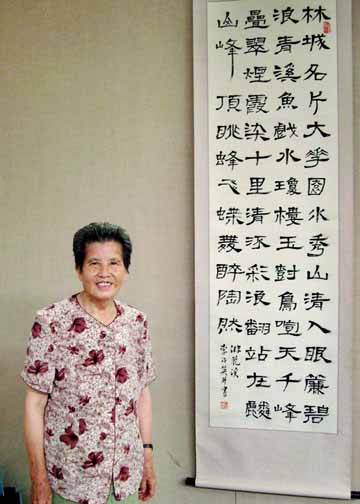 林城名片大華園水秀山清入眼簾碧
浪青溪魚戲水瓊樓玉對鳥喧天千峰
疊翠煙霞染十里清涿彩浪翻站在麟
山峰頂眺蜂飞蝶舞醉陶然
游花溪
英并書